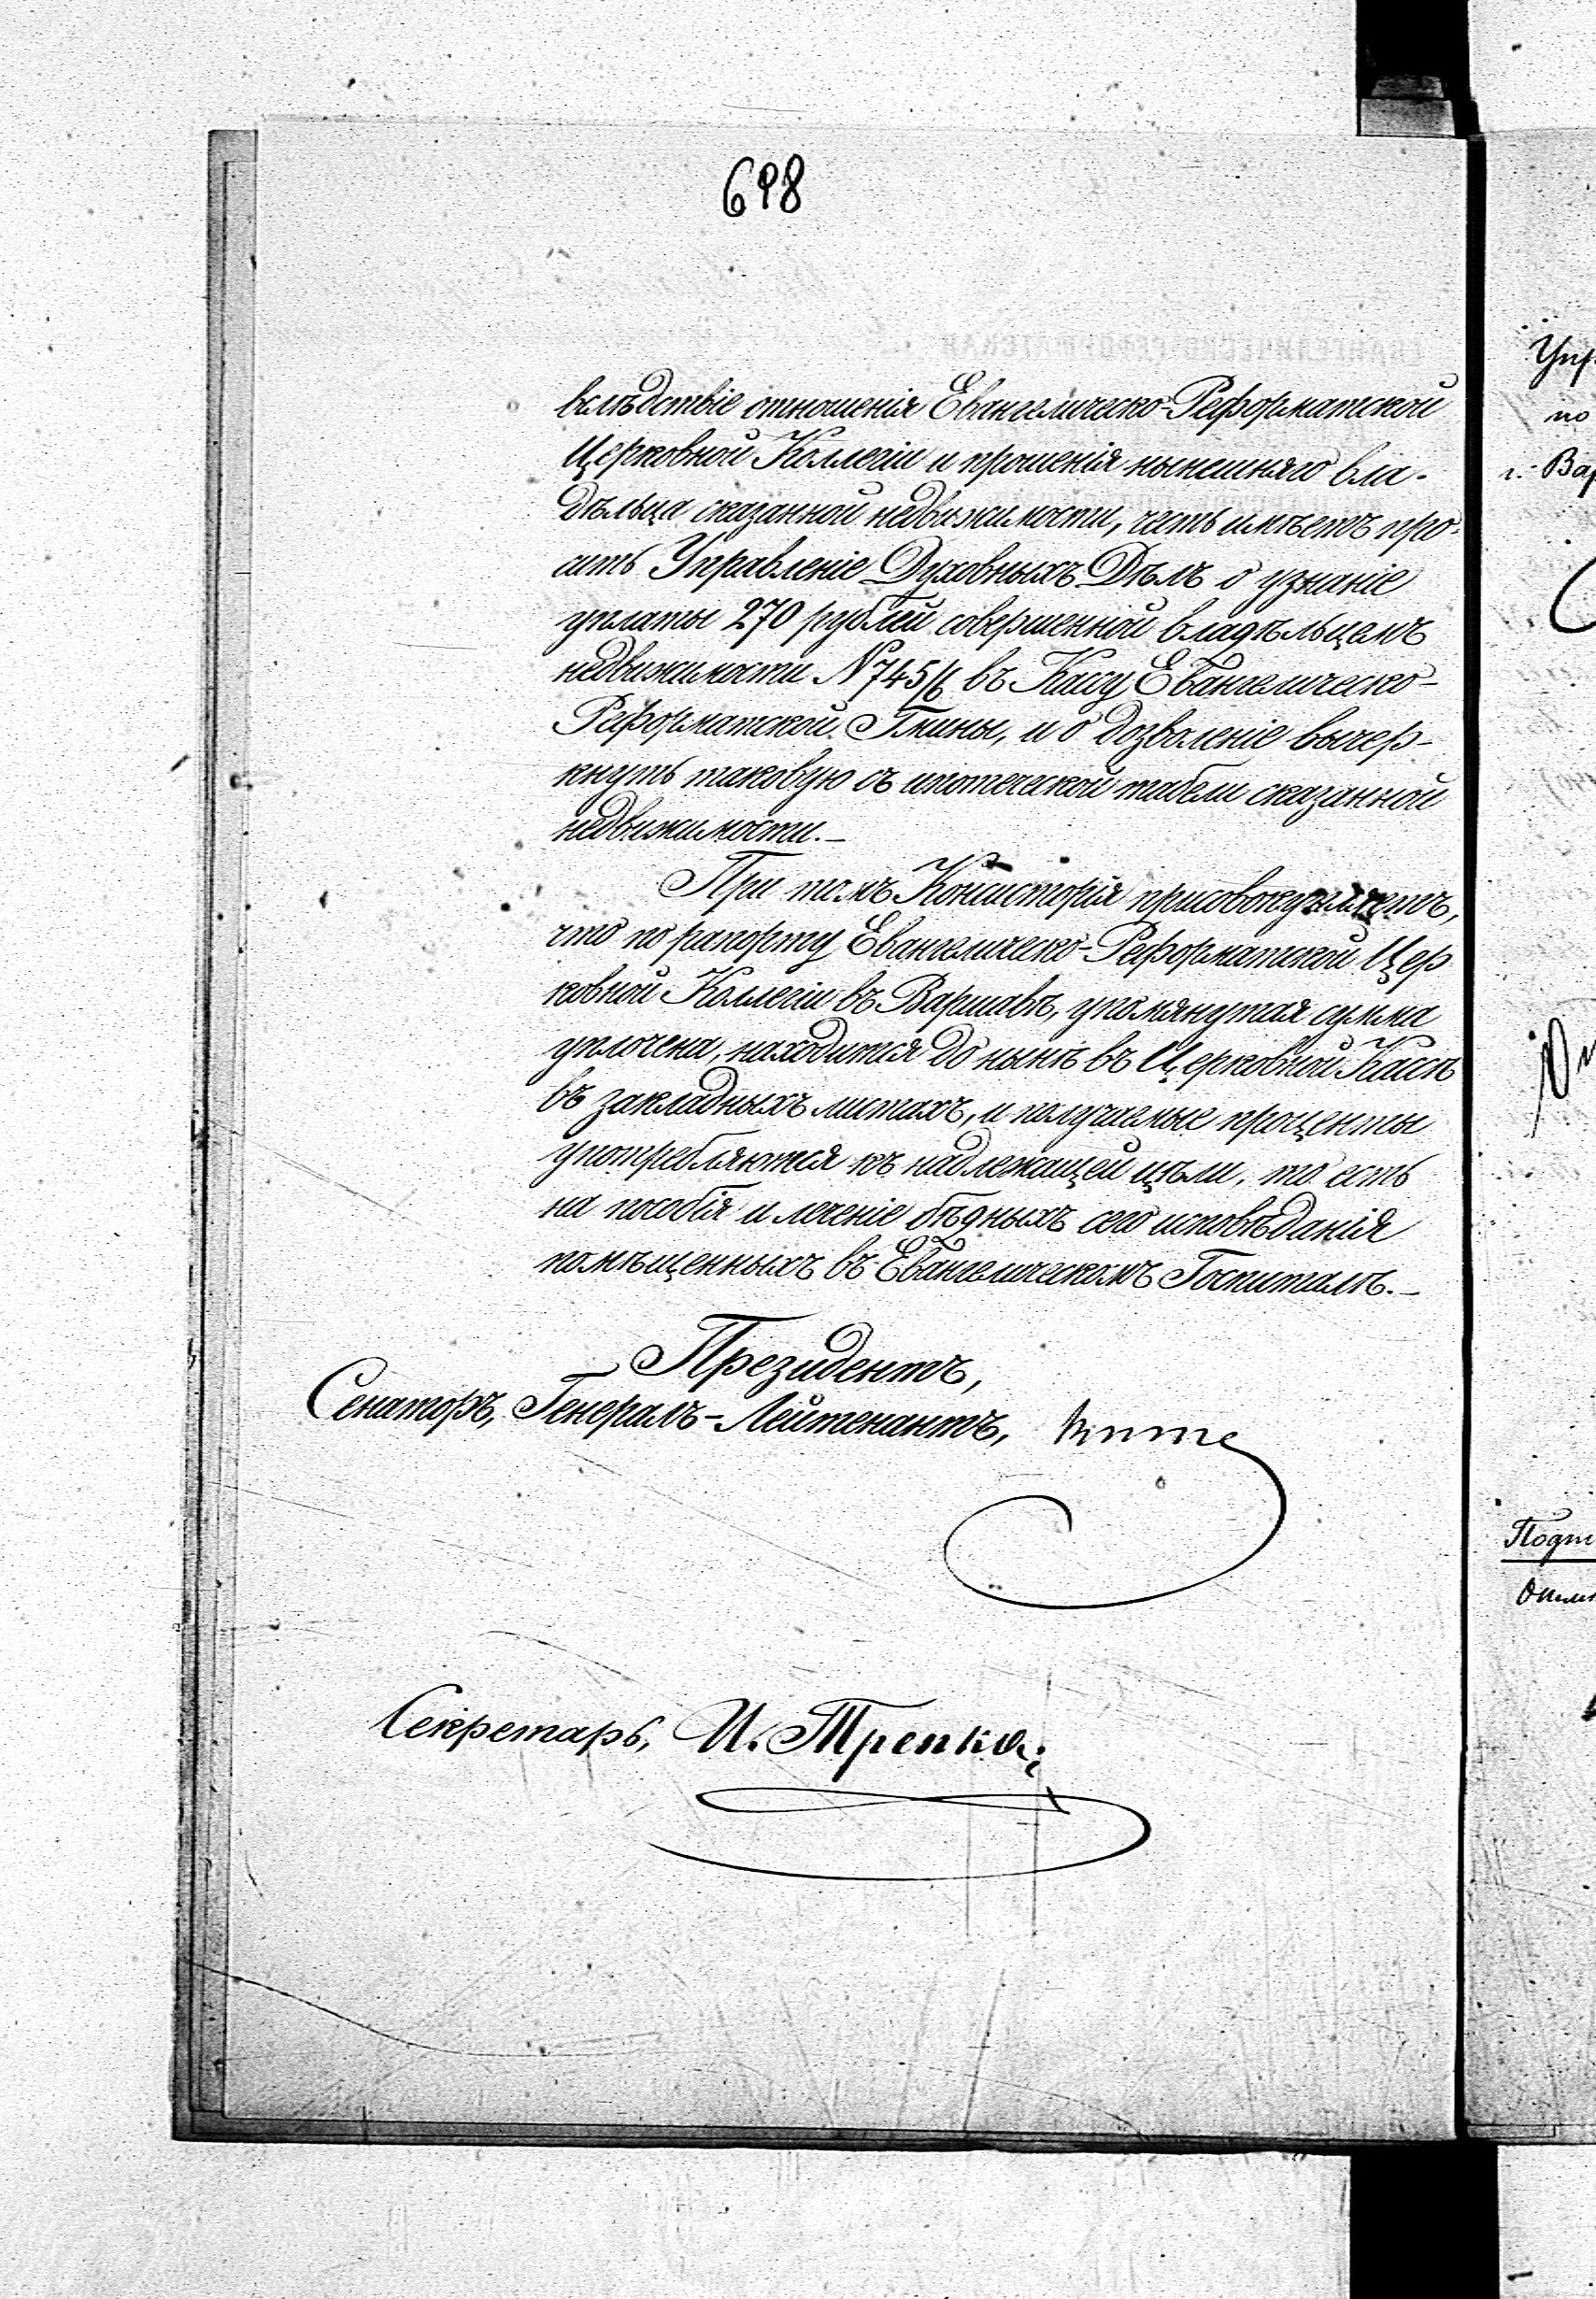 698
вслѣдствіе отношенія Евангелическо-Реформатской
Церковной Коллегіи и прошенія нынешняго вла-
дѣльца сказанной недвижимости, честь имѣетъ про-
сить Управленіе Духовныхъ Дѣлъ о узнаніе
уплаты 270 рублей совершенной владѣльцемъ
недвижимости N 745/6 въ Кассу Евангелическо-
Реформатской Гмины, и о дозволеніе вычер-
кнуть таковую съ ипотеческой табели сказанной
недвижимости.-
При томъ Консисторія присовокупляетъ,
что по рапорту Евангелическо-Реформатской Цер
ковной Коллегіи въ Варшавѣ, упомянутая сумма
уплочена, находится до нынѣ въ Церковной Кассѣ
въ закладныхъ листахъ, и получаемые проценты
употребляются къ надлежащей цѣли, то есть
на пособія и леченіе бѣдныхъ сего исповѣданія
помѣщенныхъ въ Евангелическомъ Госпиталѣ.-
Президентъ,
Сенаторъ, Генералъ-Лейтенантъ, Витте
Секретарь, И. Трепка
Упр
по
г. Вар
Подп